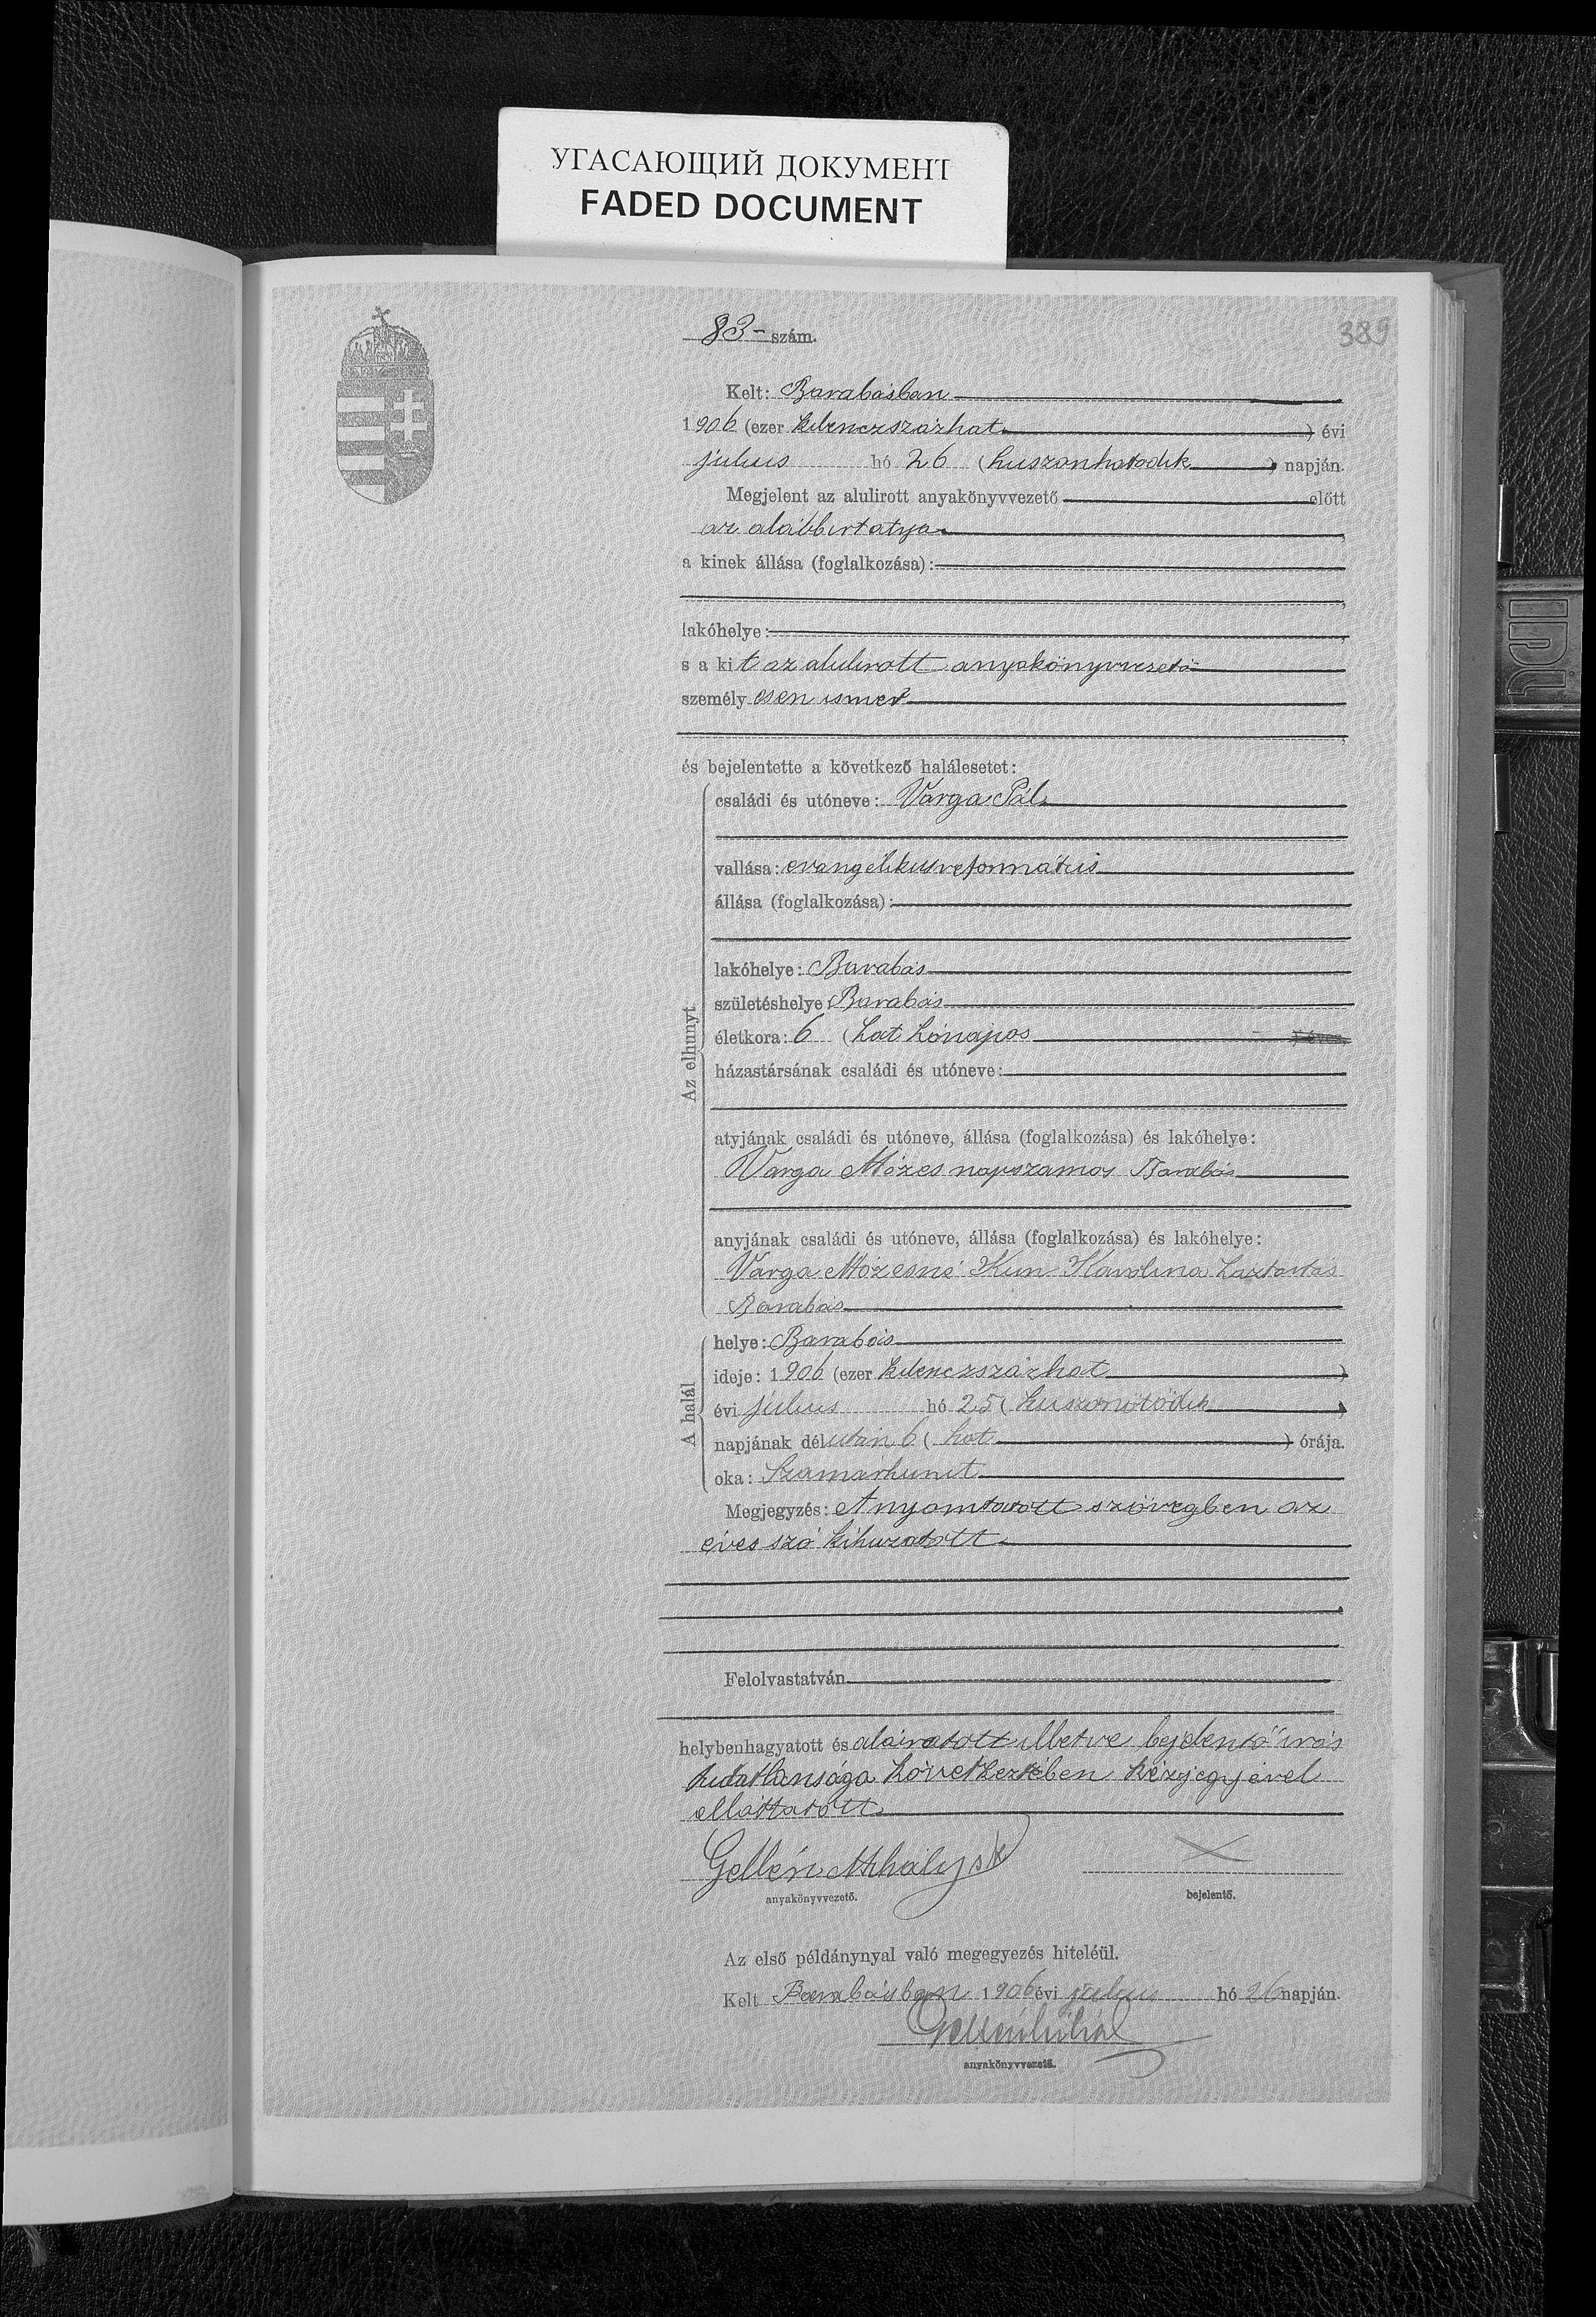 УГАСАЮЩИЙ ДОКУМЕНТ
FADED DOCUMENT
83 - szám.
389
Kelt: Barabásban
1906 (ezer kilenczszázhat) évi
julius hó 26 (huszonhatodik) napján.
Megjelent az alulirott anyakönyvvezető előtt
az alábbirt atya,
a kinek állása (foglalkozása):
lakóhelye:
s a kit az alulirott anyakönyvvezető
személyesen ismer
és bejelentette a következő halálesetet:
Az elhunyt
családi és utóneve: Varga Pál
vallása: evangélikus református
állása (foglalkozása):
lakóhelye: Barabás
születéshelye: Barabás
életkora: 6 (hat hónapos) éves,
házastársának családi és utóneve:
atyjának családi és utóneve, állása (foglalkozása) és lakóhelye:
Varga Mózes napszamos Barabás
anyjának családi és utóneve, állása (foglalkozása) és lakóhelye:
Varga Mózesné Kun Karolina háztartás
Barabás
A halál
helye: Barabás
ideje: 1906 (ezer kilenczszázhat)
évi julius hó 25 (huszonötödik)
napjának délután 6 (hat) órája.
oka: Szamárhurut
Megjegyzés: A nyomtatott szövegben az
éves szó kihuzatott
Felolvastatván
helybenhagyatott és aláiratott illetve bejelentő irás
tudatlansága következtében kézjegyével
elláttatott
Gellén Mihály sk
X
anyakönyvvezető.
bejelentő.
Az első példánynyal való megegyezés hiteléül.
Kelt Barabásban 1906 évi julius hó 26 napján.
Gellén Mihál
anyakönyvvezető.